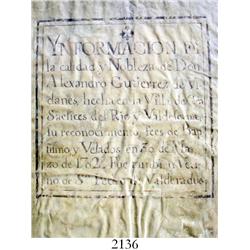 YNFORMACION DE
la calidad y Nobleza de Don
Alexandro Gutierrez de Vi
danes, hecha en la Villa de
Saelices del Rio y Valdelema,
su reconocimiento, fees de Bap
tismo y Velados en 30 de Mar
zo de 1782. Fue tambien Vezi
no de Sn. Pedro de Valderaduei
2136